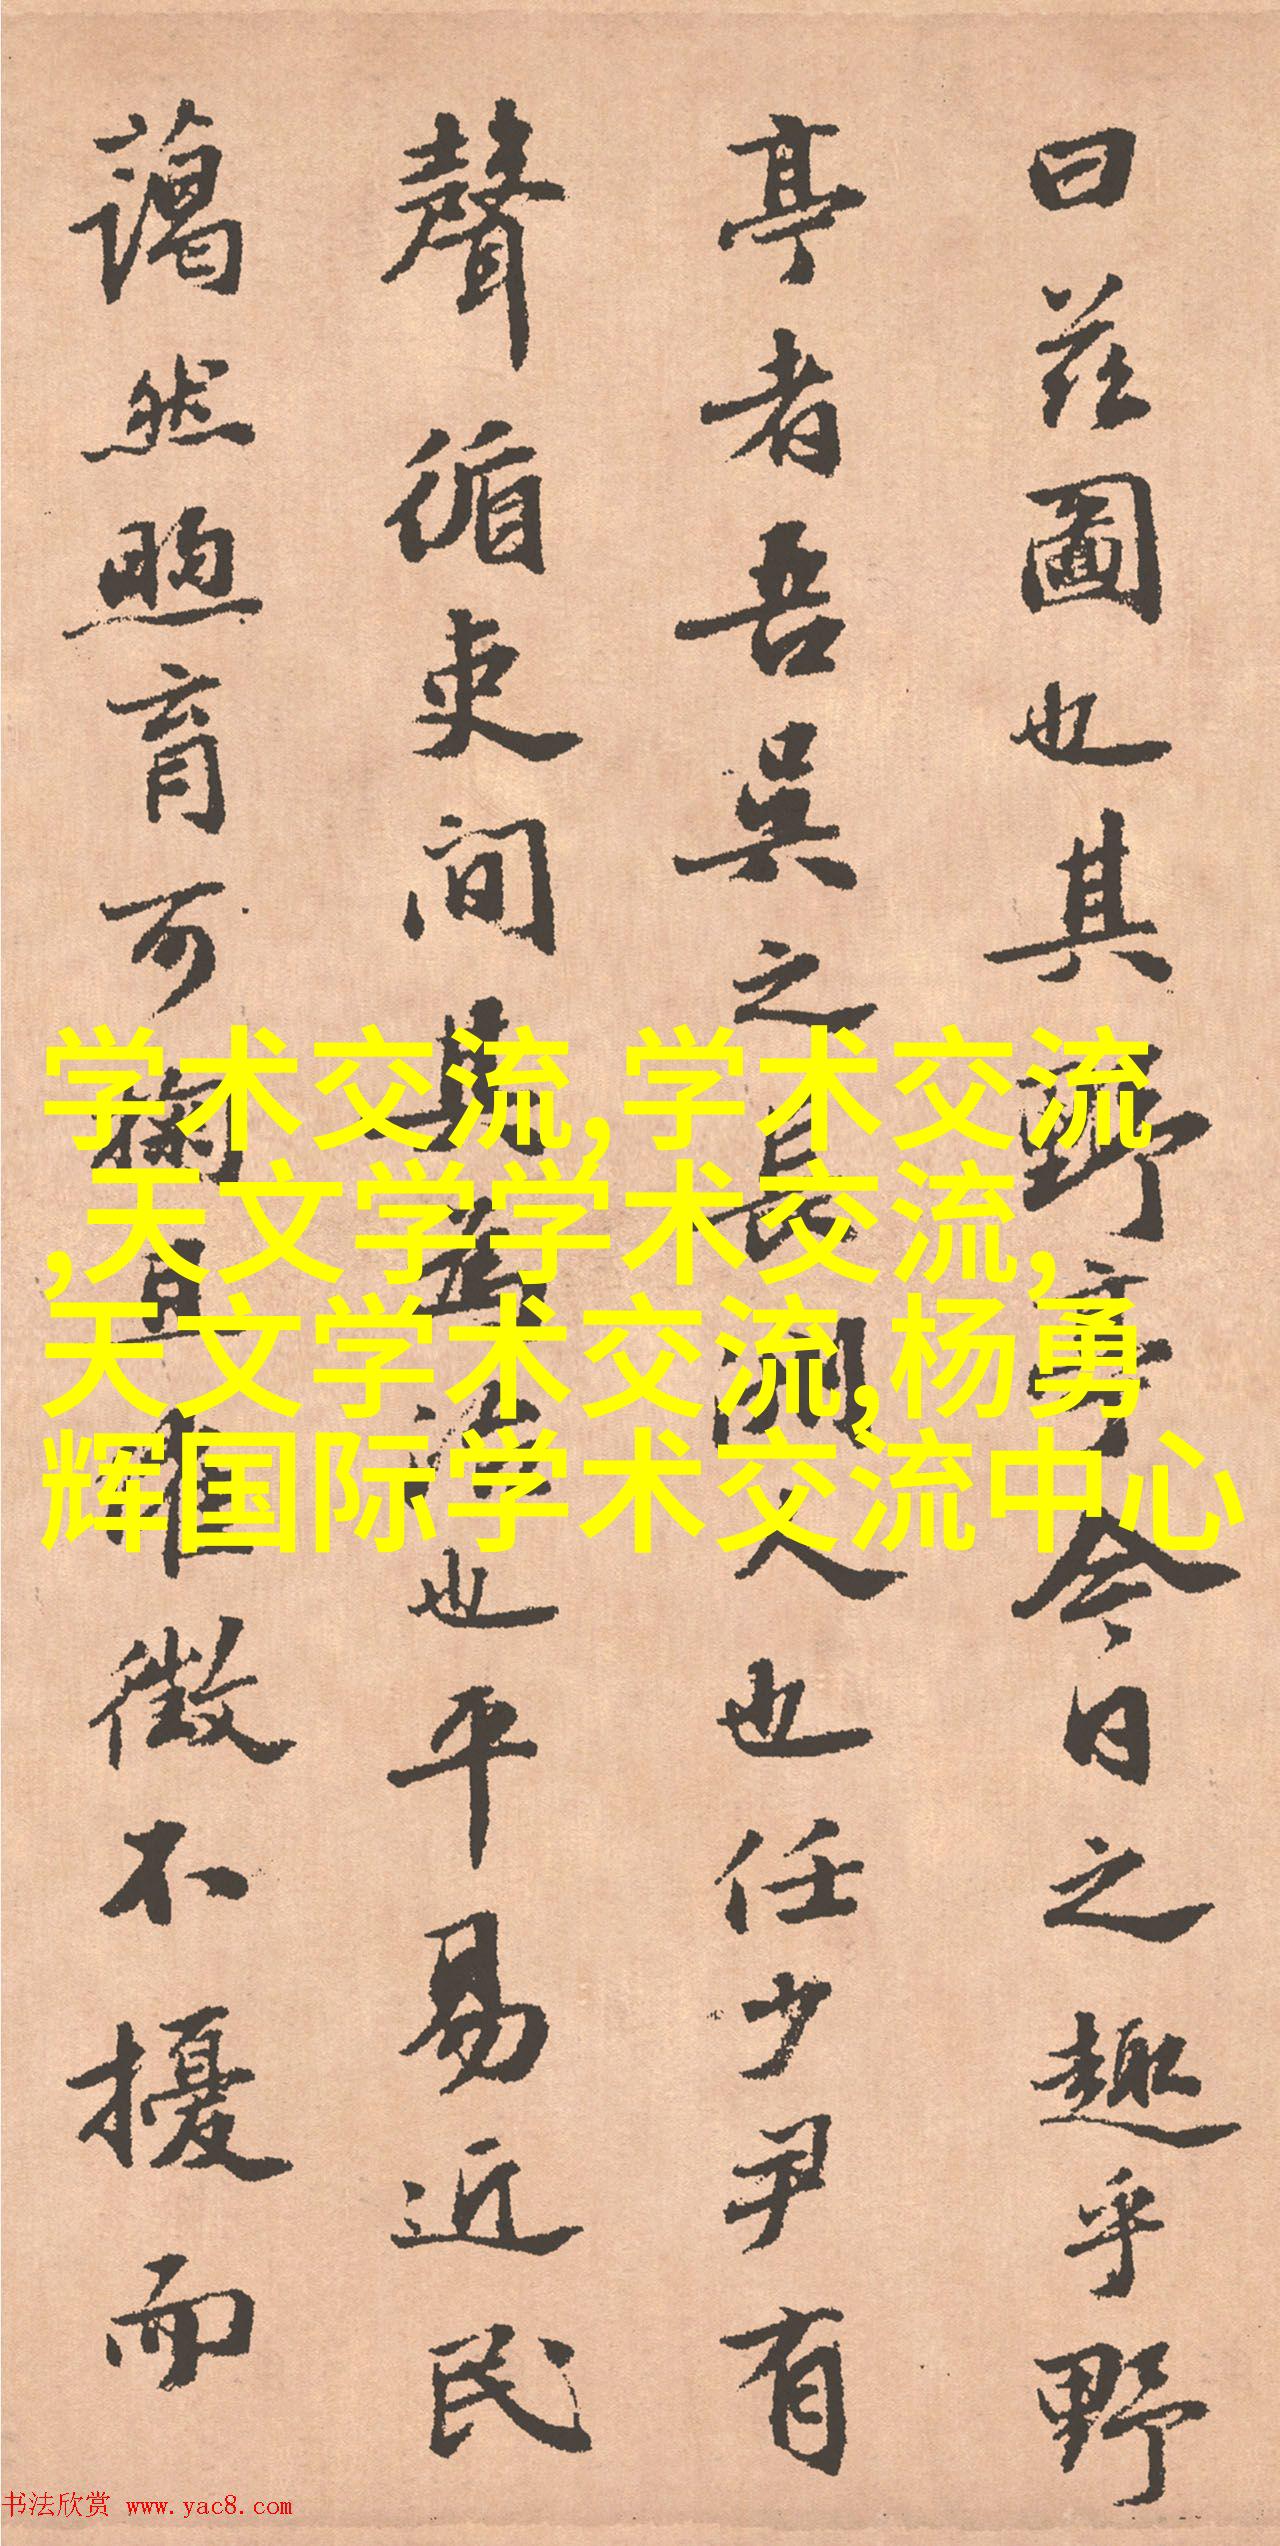 曰茲圖也其野亭今日之趣乎野
亭者吾吳之長洲人也任少尹有
聲循吏間其為治也平易近民
藹然煦育可掬且惟徴不擾而
学术交流,学术交流
,天文学学术交流,
天文学术交流,杨勇
辉国际学术交流中心
书法欣赏 www.yac8.com